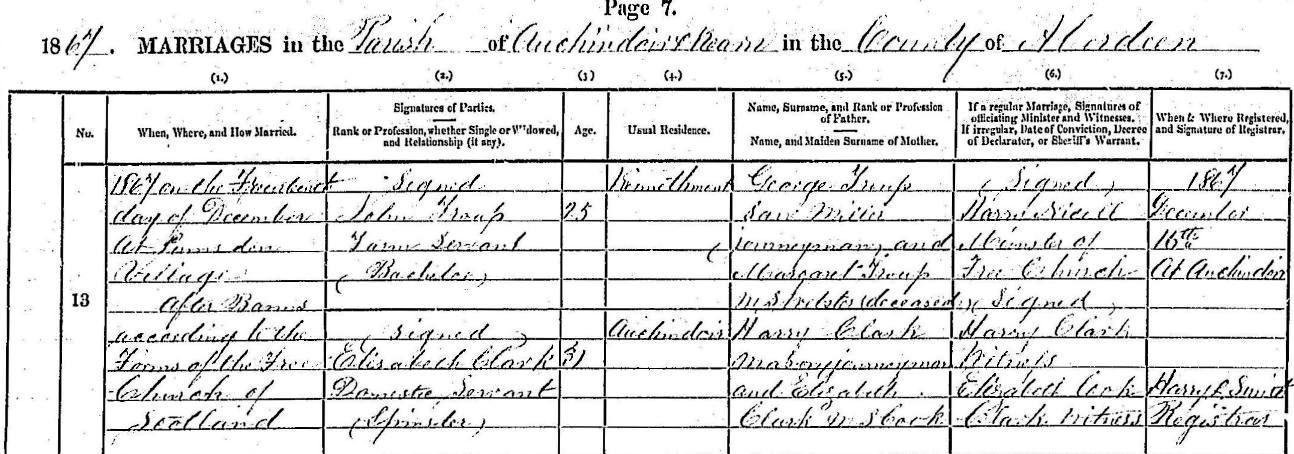 Page 7.
1867. MARRIAGES in the Parish of Auchindoir & Kearn in the County of Aberdeen
(1.) (2.) (3) (4.) (5.) (6.) (7.)
No.
When, Where, and How Married.
Signatures of Parties.
Rank or Profession, whether Single or Widowed,
and Relationship (if any).
Age.
Usual Residence.
Name, Surname, and Rank or Profession
of Father.
Name, and Maiden Surname of Mother.
If a regular Marriage, Signatures of
officiating Minister and Witnesses.
If irregular, Date of Conviction, Decree
of Declarator, or Sheriff's Warrant.
When & Where Registered,
and Signature of Registrar.
13
1867 on the
day of December
At Lumsden
Village
After Banns
according to the
Forms of the Free
Church of
Scotland
(Signed)
John Troup
Farm Servant
(Bachelor)
(Signed)
Elizabeth Clark
Domestic Servant
(Spinster)
25
31
Kennethmont
Auchindoir
George Troup
Saw Miller
(journeyman) and
Margaret Troup
M.S. (deceased)
Harry Clark
Mason journeyman
and Elizabeth
Clark M.S. Cook
(Signed)
Harry Nicoll
Minister of
Free Church
(Signed)
Harry Clark
Witness
Elizabeth Cook
Clark Witness
1867
December
16th
At Auchindoir
Harry Smith
Registrar